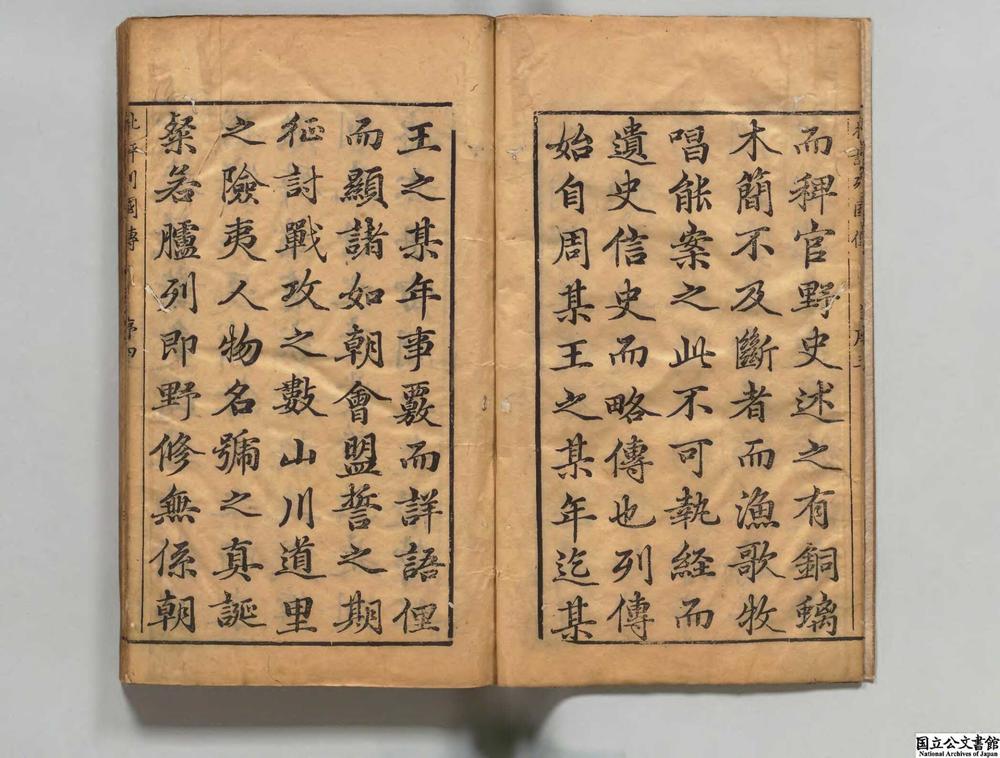 而稗官野史述之有銅螭
木簡不及斷者而漁歌牧
唱能案之此不可執経而
遺史信史而略傳也列傳
始自周某王之某年迄某
王之某年事覈而詳語俚
而顯諸如朝會盟誓之期
征討戰攻之數山川道里
之險夷人物名號之真誕
粲若臚列即野修無係朝
批評列國傳
序四
国立公文書館
National Archives of Japan